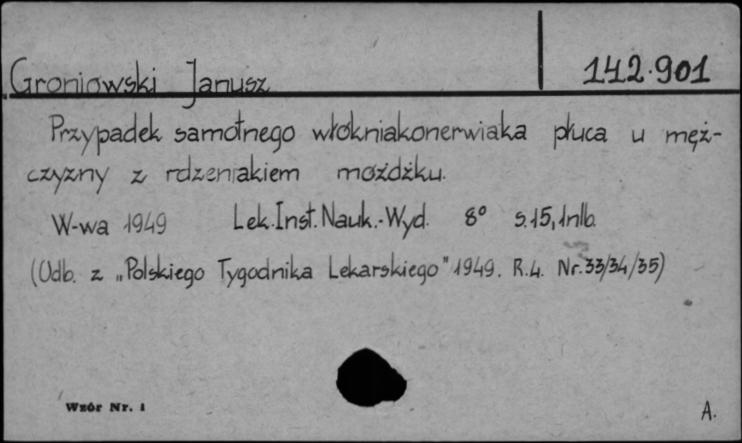 Groniowski Janusz 142.901
Przypadek samotnego włókniakonerwiaka płuca u męż-
czyzny z rdzeniakiem móżdżku.
W-wa 1949 Lek.Inst.Nauk.-Wyd. 8° s.15,1nlb.
(Odb. z „Polskiego Tygodnika Lekarskiego" 1949. R.4. Nr.33/34/35)
Wzór Nr. 1 A.